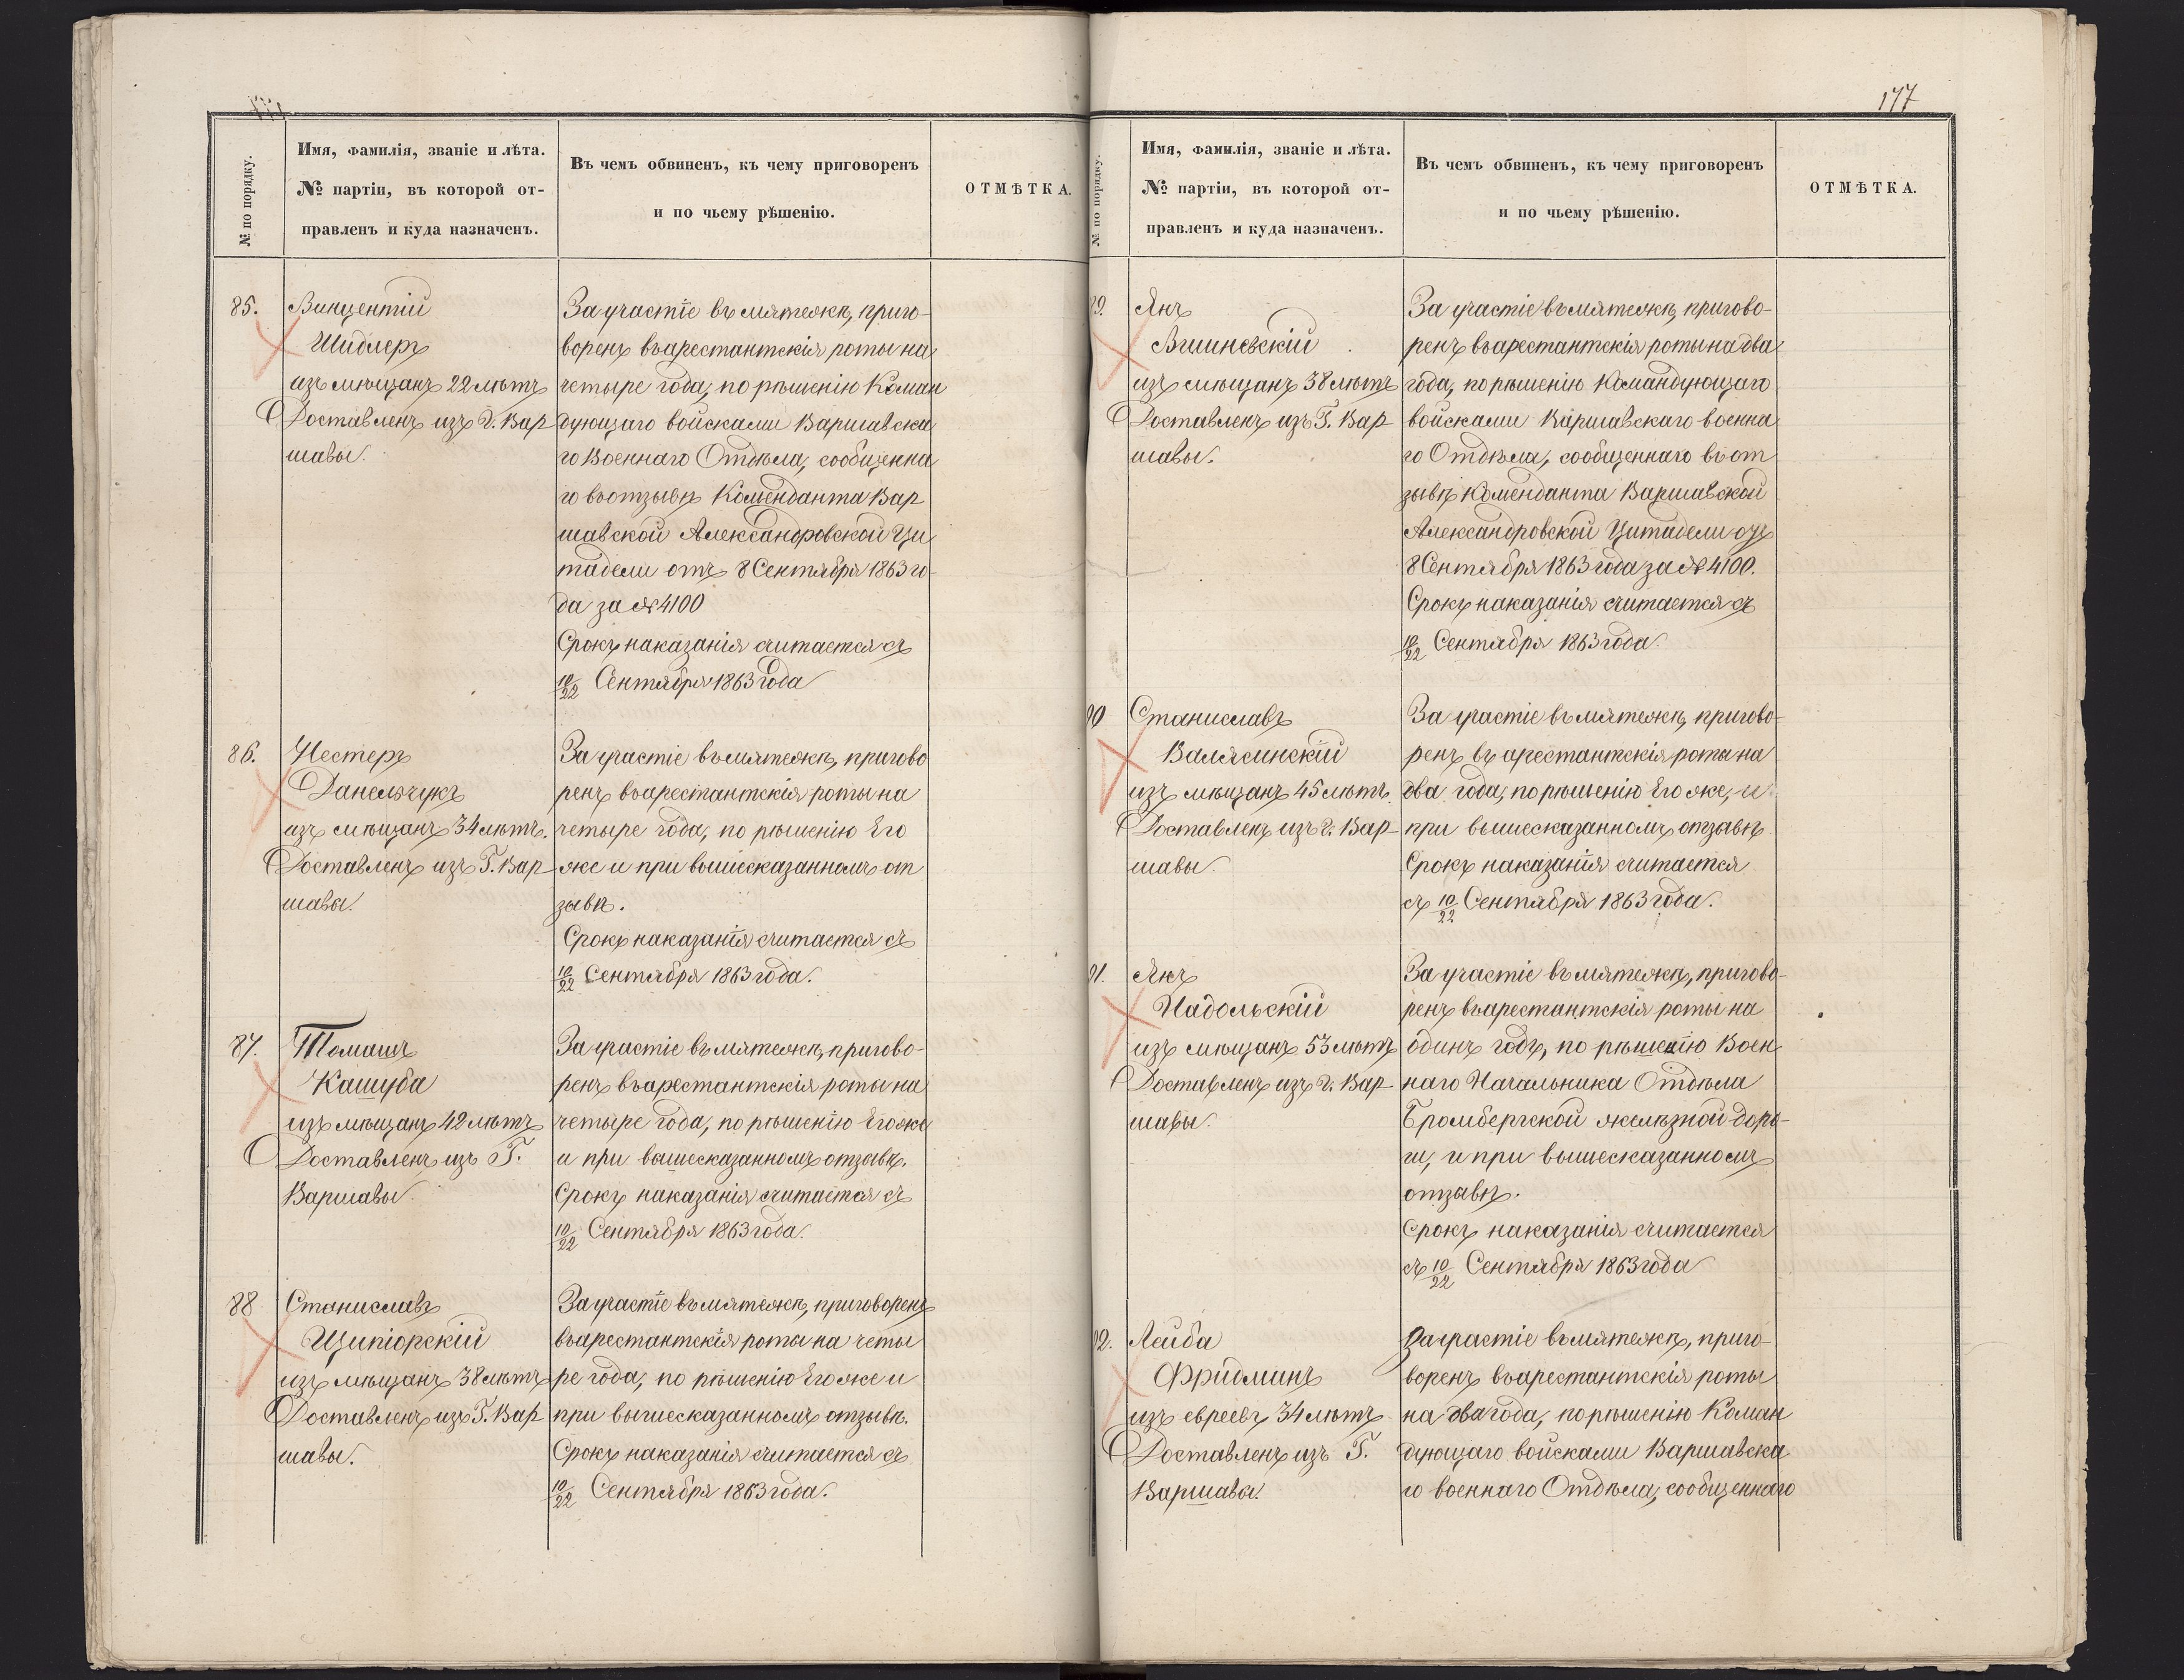 177
№ по порядку.
Имя, фамилія, званіе и лѣта.
№ партіи, въ которой от-
правленъ и куда назначенъ.
Въ чемъ обвиненъ, къ чему приговоренъ
и по чьему рѣшенію.
ОТМѢТКА.
85.
Винцентій
Шидлеръ
изъ мѣщанъ 22 лѣтъ
Доставленъ изъ г. Вар
шавы.
За участіе въ мятежѣ, приго-
воренъ въ арестантскія роты на
четыре года, по рѣшенію Коман
дующаго войсками Варшавска
го Военнаго Отдѣла, сообщенна
го въ отзывѣ Коменданта Вар
шавской Александровской Ци
тадели отъ 8 Сентября 1863 го-
да за № 4100
Срокъ наказанія считается съ
10/22 Сентября 1863 года
86.
Нестеръ
Данельчукъ
изъ мѣщанъ 34 лѣтъ.
Доставленъ изъ Г. Вар
шавы.
За участіе въ мятежѣ, пригово
ренъ въ арестантскія роты на
четыре года, по рѣшенію Его
же и при вышесказанномъ от
зывѣ.
Срокъ наказанія считается съ
10/22 Сентября 1863 года.
87.
Томашъ
Кашуба
изъ мѣщанъ 42 лѣтъ
Доставленъ изъ Г.
Варшавы.
За участіе въ мятежѣ, пригово-
ренъ въ арестантскія роты на
четыре года, по рѣшенію Его же
и при вышесказанномъ отзывѣ.
Срокъ наказанія считается съ
10/22 Сентября 1863 года.
88
Станиславъ
Щипіорскій
изъ мѣщанъ 38 лѣтъ
Доставленъ изъ Г. Вар
шавы.
За участіе въ мятежѣ, приговоренъ
въ арестантскія роты на четы
ре года, по рѣшенію Его же и
при вышесказанномъ отзывѣ.
Срокъ наказанія считается съ
10/22 Сентября 1863 года.
177
№ по порядку.
Имя, фамилія, званіе и лѣта.
№ партіи, въ которой от-
правленъ и куда назначенъ.
Въ чемъ обвиненъ, къ чему приговоренъ
и по чьему рѣшенію.
ОТМѢТКА.
89.
Янъ
Вишневскій
изъ мѣщанъ 38 лѣтъ
Доставленъ изъ Г. Вар
шавы.
За участіе въ мятежѣ, пригово-
ренъ въ арестантскія роты на два
года, по рѣшенію Командующаго
войсками Варшавскаго военна
го Отдѣла, сообщеннаго въ от
зывѣ Коменданта Варшавской
Александровской Цитадели отъ
8 Сентября 1863 года за № 4100.
Срокъ наказанія считается съ
10/22 Сентября 1863 года.
90
Станиславъ
Валясинскій
изъ мѣщанъ 45 лѣтъ.
Доставленъ изъ г. Вар
шавы.
За участіе въ мятежѣ, пригово-
ренъ въ арестантскія роты на
два года, по рѣшенію Его же, и
при вышесказанномъ отзывѣ
Срокъ наказанія считается
съ 10/22 Сентября 1863 года.
91.
Янъ
Надольскій
изъ мѣщанъ 53 лѣтъ
Доставленъ изъ г. Вар
шавы.
За участіе въ мятежѣ, пригово-
ренъ въ арестантскія роты на
одинъ годъ, по рѣшенію Воен
наго Начальника Отдѣла
Бромбергской желѣзной доро-
ги, и при вышесказанномъ
отзывѣ.
Срокъ наказанія считается
съ 10/22 Сентября 1863 года
92.
Лейба
Фридминъ
изъ евреевъ 34 лѣтъ
Доставленъ изъ Г.
Варшавы.
За участіе въ мятежѣ, приго-
воренъ въ арестантскія роты
на два года, по рѣшенію Коман
дующаго войсками Варшавска
го военнаго Отдѣла, сообщеннаго